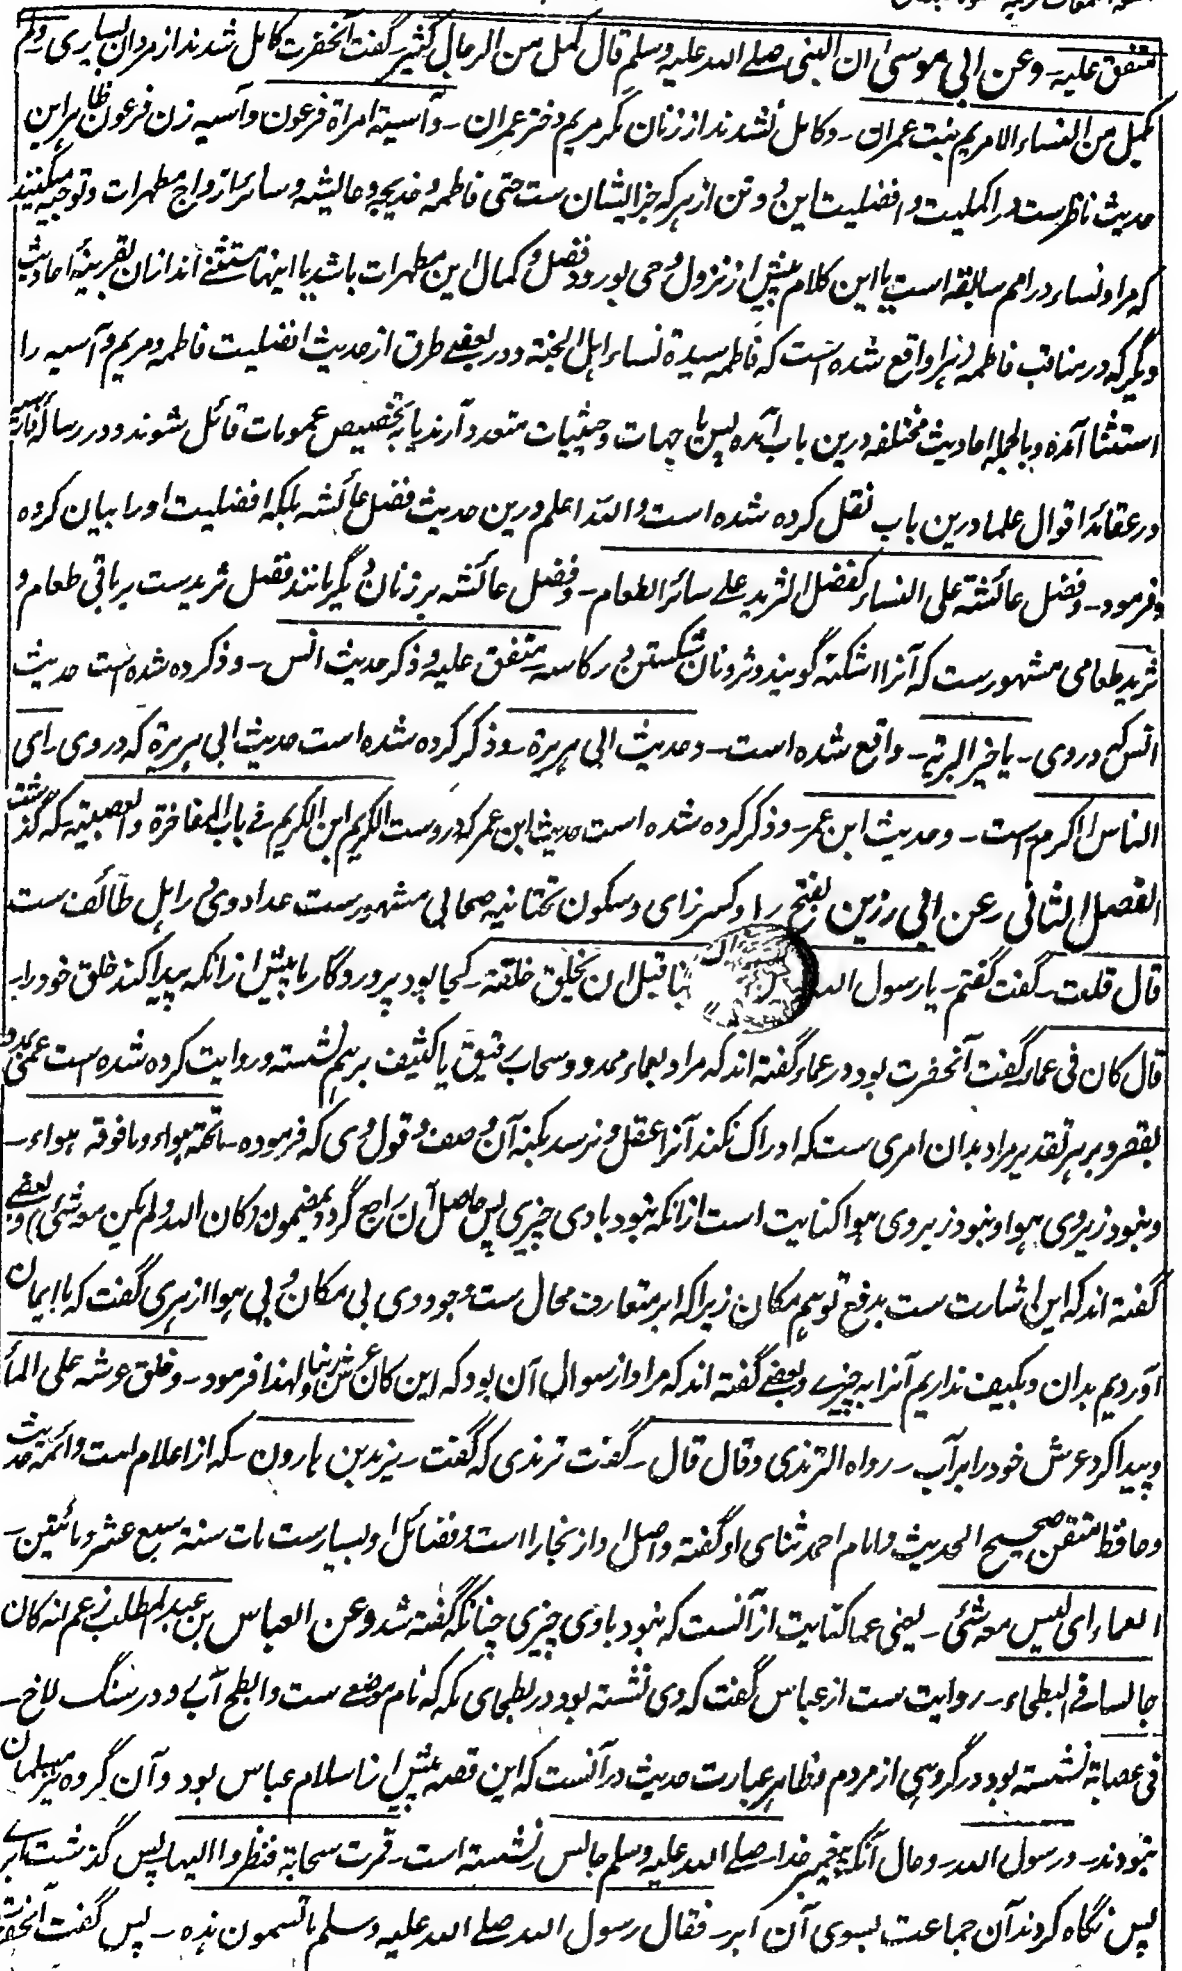 متفق علیه ـ وعن ابی موسیٰ ان النبی صلے الله علیه وسلم قال کمل من الرجال کثیر ـ گفت آنحضرت کامل شدند از مردان بسیاری ولم
یکمل من النساء الا مریم بنت عمران ـ وکامل نشدند از زنان مگر مریم دختر عمران ـ وآسیة امرأة فرعون وآسیه زن فرعون ظاهر این
حدیث ناظرست در اکملیت و افضلیت این دو تن از هرکه جز ایشان ست حتی فاطمه و خدیجه و عایشه و سائر ازواج مطهرات وتوجیه میکنند
که مراد نساء در امم سابقه است یا این کلام پیش از نزول وحی بورود فضل و کمال این مطهرات باشد یا اینها مستثنے اند ازان بقرینهٔ احادیث
دیگر که در مناقب فاطمه زهرا واقع شده است که فاطمه سیدة نساء اهل الجنة و در بعضے طرق از حدیث افضلیت فاطمه و مریم و آسیه را
استثنا آمده و بالجمله احادیث مختلفه درین باب آمده پس یا جهات و حیثیات متعدد آرند یا به تخصیص عمومات قائل شوند و در رسالهٔ فارسیه
در عقائد اقوال علما درین باب نقل کرده شده است والله اعلم و درین حدیث فضل عائشه بلکه افضلیت او را بیان کرده
و فرمود ـ وفضل عائشة علی النساء کفضل الثرید علے سائر الطعام ـ وفضل عائشه بر زنان دیگر مانند فضل ثریدست بر باقی طعام و
ثرید طعامی مشهورست که آنرا اشکنه گویند و ثرد نان شکستن در کاسه ـ متفق علیه وذکر حدیث انس ـ وذکرده شده است حدیث
انس که در وی ـ یا خیر البریة ـ واقع شده است ـ وحدیث ابی هریرة ـ وذکر کرده شده است حدیث ابی هریرة که در وی ـ ای
الناس اکرم است ـ وحدیث ابن عمر ـ وذکر کرده شده است حدیث ابن عمر که دروست الکریم ابن الکریم فے باب المفاخرة والعصبیة که گذشت
الفصل الثانی ـ عن ابی رزین بفتح را و کسر زای و سکون تحتانیه صحابی مشهورست عداد وی در اهل طائف ست
قال قلت ـ گفت گفتم ـ یا رسول الله بنا قبل ان یخلق خلقه ـ کجا بود پروردگار ما پیش از آنکه پیدا کند خلق خود را ـ
قال کان فی عماء ـ گفت آنحضرت بود در عماء گفته اند که مراد بعماء ممدود سحاب رقیق یا کثیف برهم نشسته و روایت کرده شده است عمی
بقصر و بر هر تقدیر مراد بدان امری ست که ادراک نکند آنرا عقل و نرسد بکنه آن وصف و قول وی که فرموده ـ ما تحته هواء وما فوقه هواء ـ
و نبود زیر وی هوا و نبود زبر وی هوا کنایت است از آنکه نبود با وی چیزی پس حاصل آن راجع گردد بمضمون (کان الله ولم یکن معه شئ) و بعضے
گفته اند که این اشارت ست بدفع توهم مکان زیرا که ابر متعارف محال ست وجود وی بی مکان و بی هوا ازهری گفت که ما ایمان
آوردیم بدان و تکییف نداریم آنرا به چیزے و بعضے گفته اند که مراد از سوال آن بود که این کان عرش ربنا و لهذا فرمود ـ وخلق عرشه علی الماء
و پیدا کرد عرش خود را بر آب ـ رواه الترمذی وقال قال ـ گفت ترمذی که گفت ـ یزید بن هارون ـ که از اعلام است و ائمه حدیث
و حافظ متقن صحیح الحدیث و امام احمد ثنای او گفته و اصل او از بخارا است و فضائل او بسیارست مات سنة سبع عشر و مائتین ـ
العماء ای لیس معه شئ ـ یعنی عما کنایت از آنست که نبود باوی چیزی چنانکه گفته شد وعن العباس بن عبد المطلب زعم انه کان
جالسا فے البطحاء ـ روایت ست از عباس گفت که وی نشسته بود در بطحای مکه که نام موضعے ست و ابطح آب رو در سنگ لاخ ـ
فی عصابة نشسته بود در گروهی از مردم و ظاهر عبارت حدیث در آنست که این قصه پیش از اسلام عباس بود و آن گروه نیز مسلمان
نبودند ـ ورسول الله ـ وحال آنکه پیغمبر خدا ـ صلے الله علیه وسلم جالس نشسته است ـ فمرت سحابة فنظروا الیها پس گذشت ابرے
پس نگاه کردند آن جماعت بسوی آن ابر ـ فقال رسول الله صلے الله علیه وسلم ما تسمون هذه ـ پس گفت آنحضرت